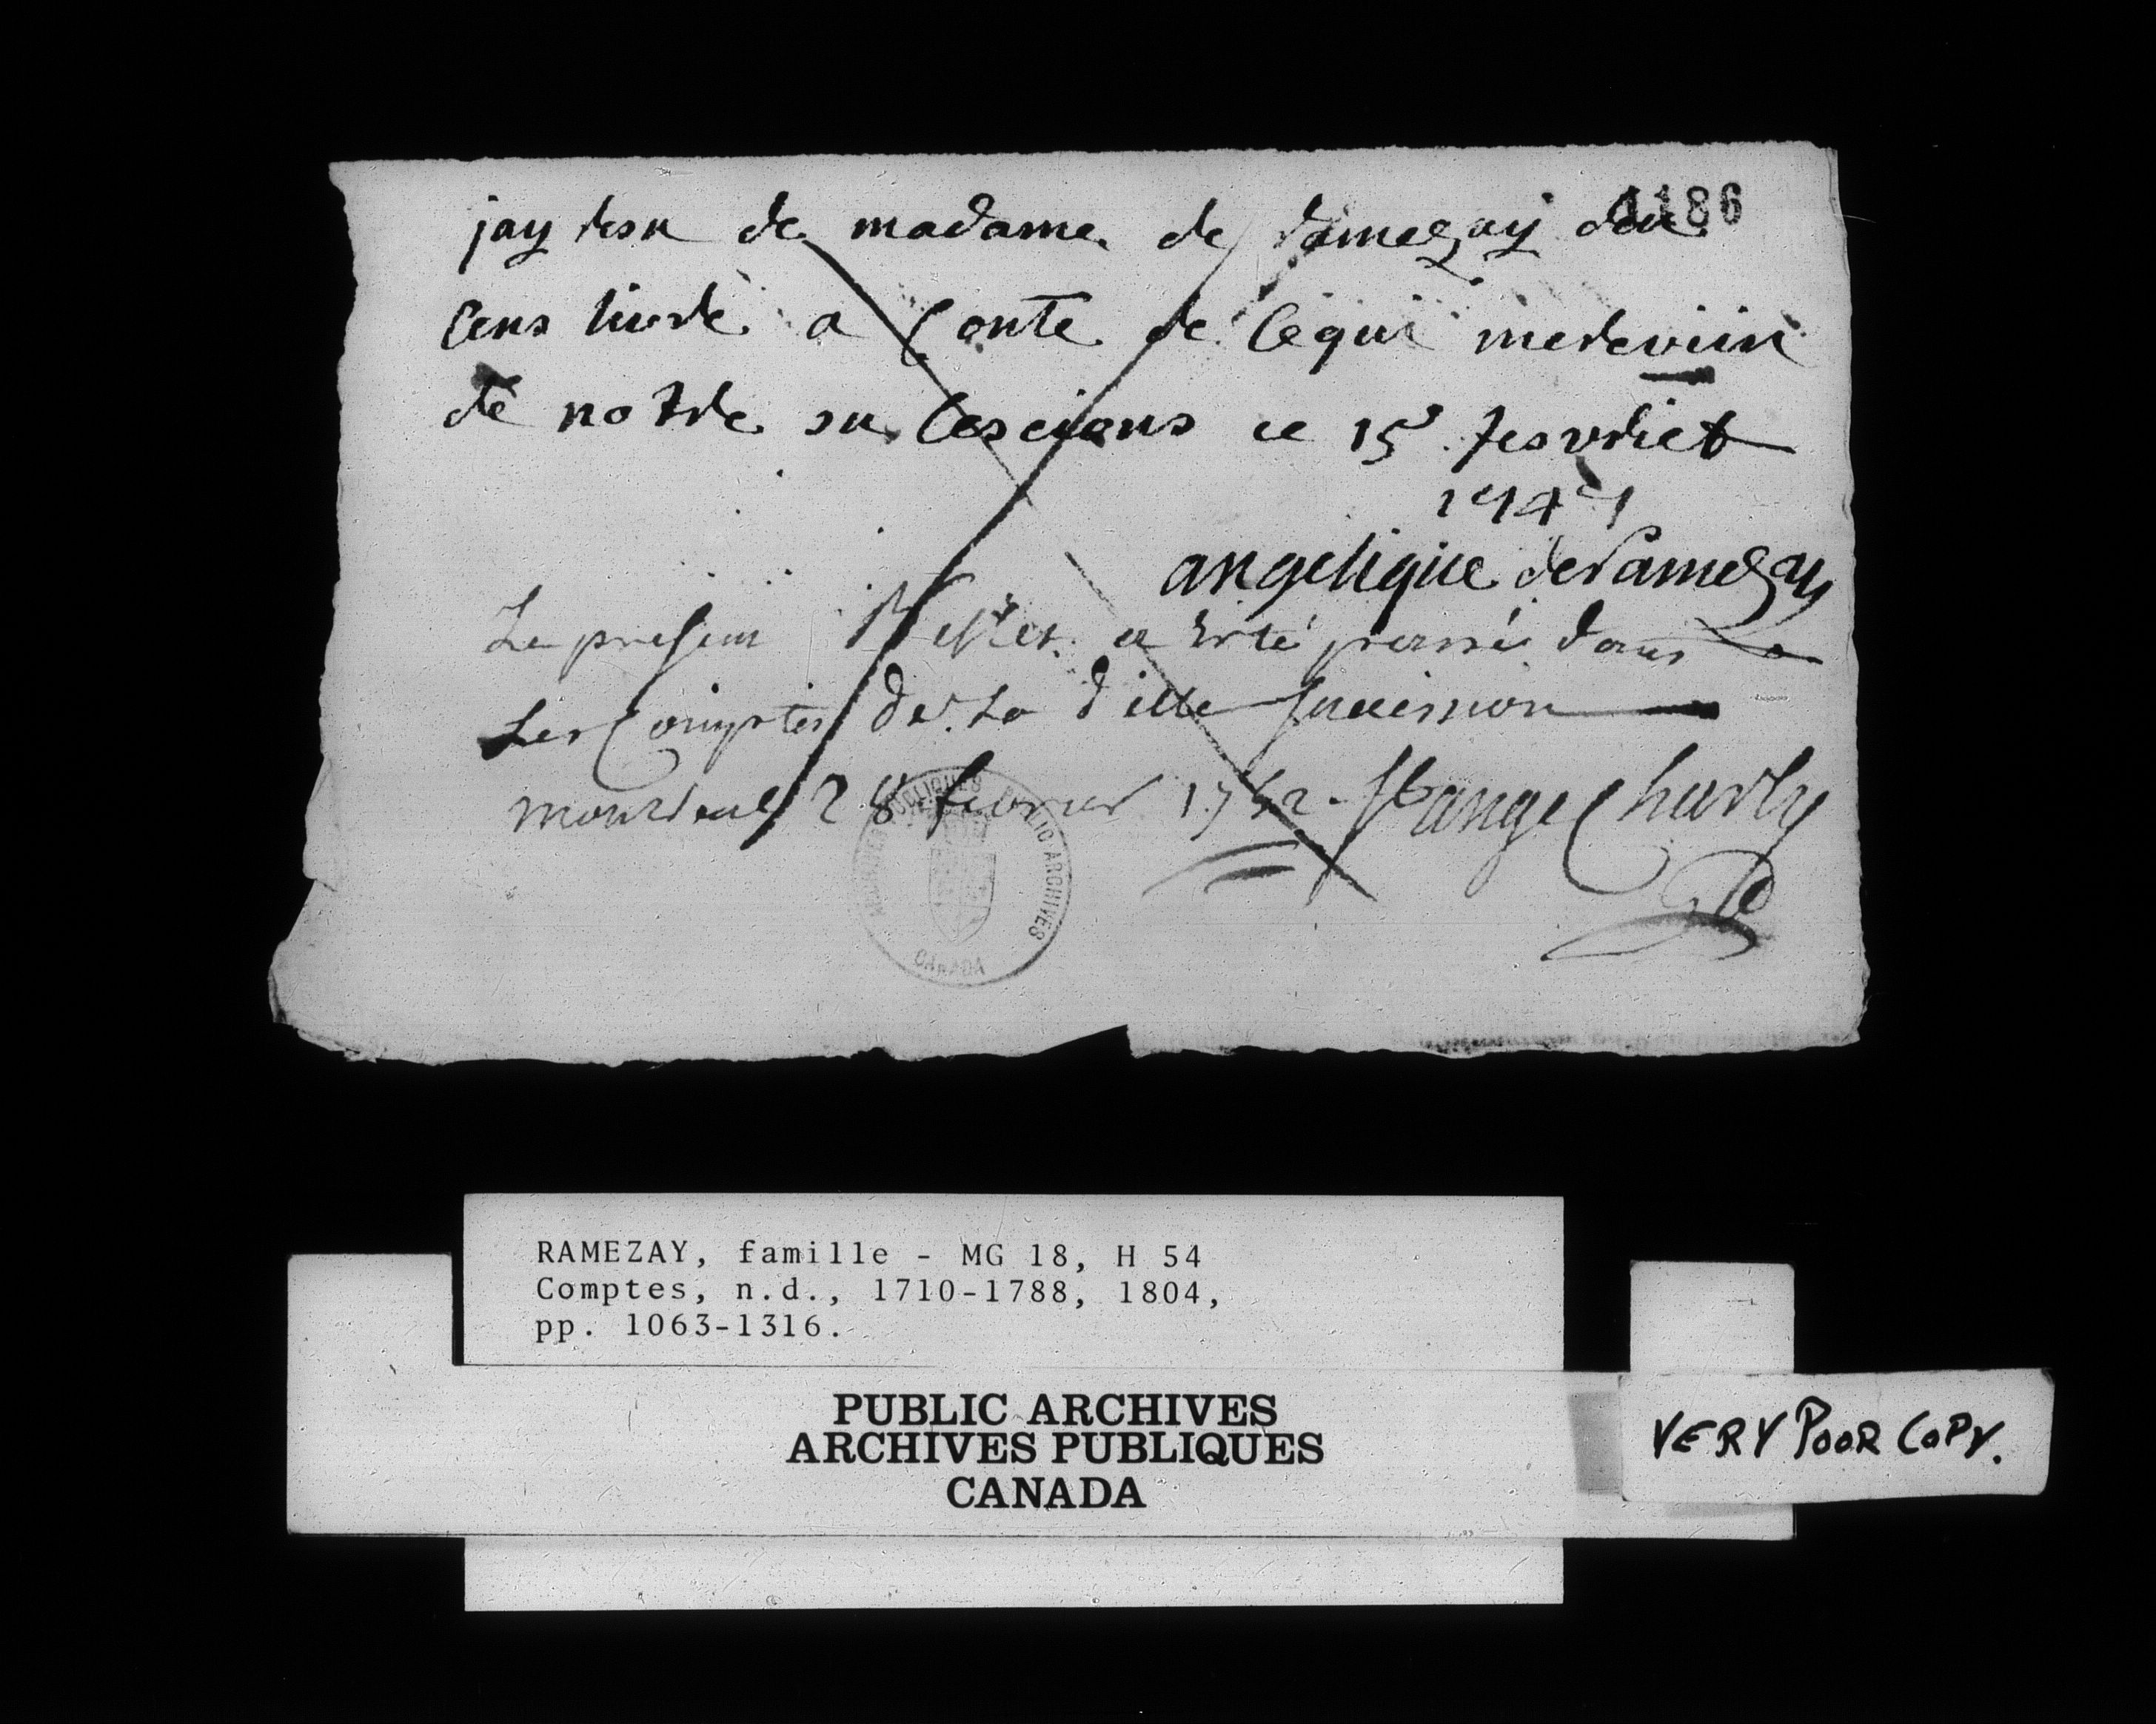 1186
jay resu de madame de ramezay deu
cens livre a Conte de Cequi mereviin
de notre su Cescions ce 15 fesvrier
1741
angelique deramezay
Le present a Esté passé dans
Les Comptes De La ditte succession
montreal 28 fevrier 1742 - St ange Charly
ARCHIVES PUBLIQUES PUBLIC ARCHIVES
CANADA
RAMEZAY, famille - MG 18, H 54
Comptes, n.d., 1710-1788, 1804,
pp. 1063-1316.
PUBLIC ARCHIVES
ARCHIVES PUBLIQUES
CANADA
VERY POOR COPY.